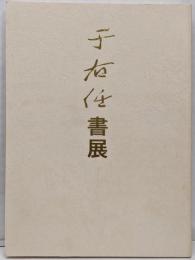 于右任
書展